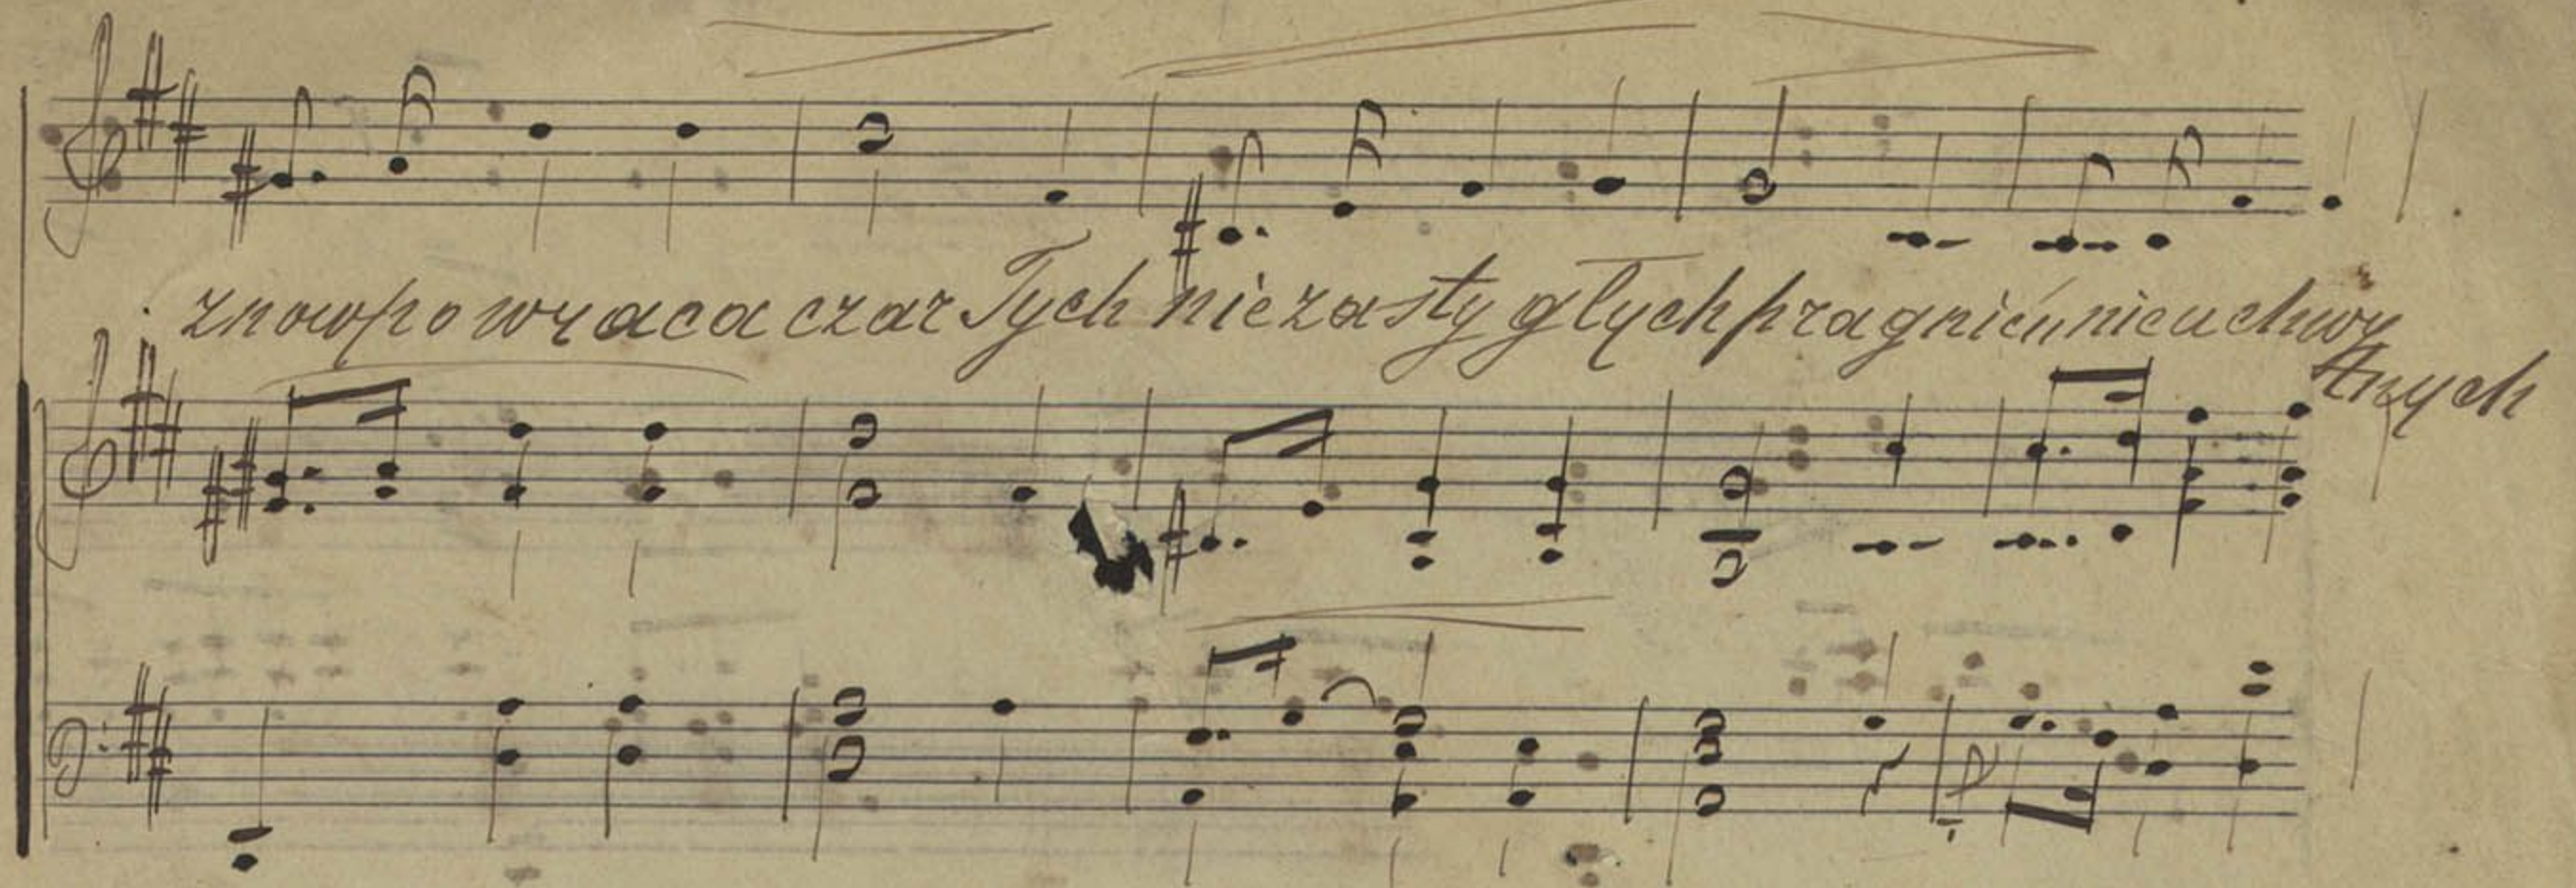 znow powraca czar Tych niezastygłych pragnień, nieuchwy
tnych